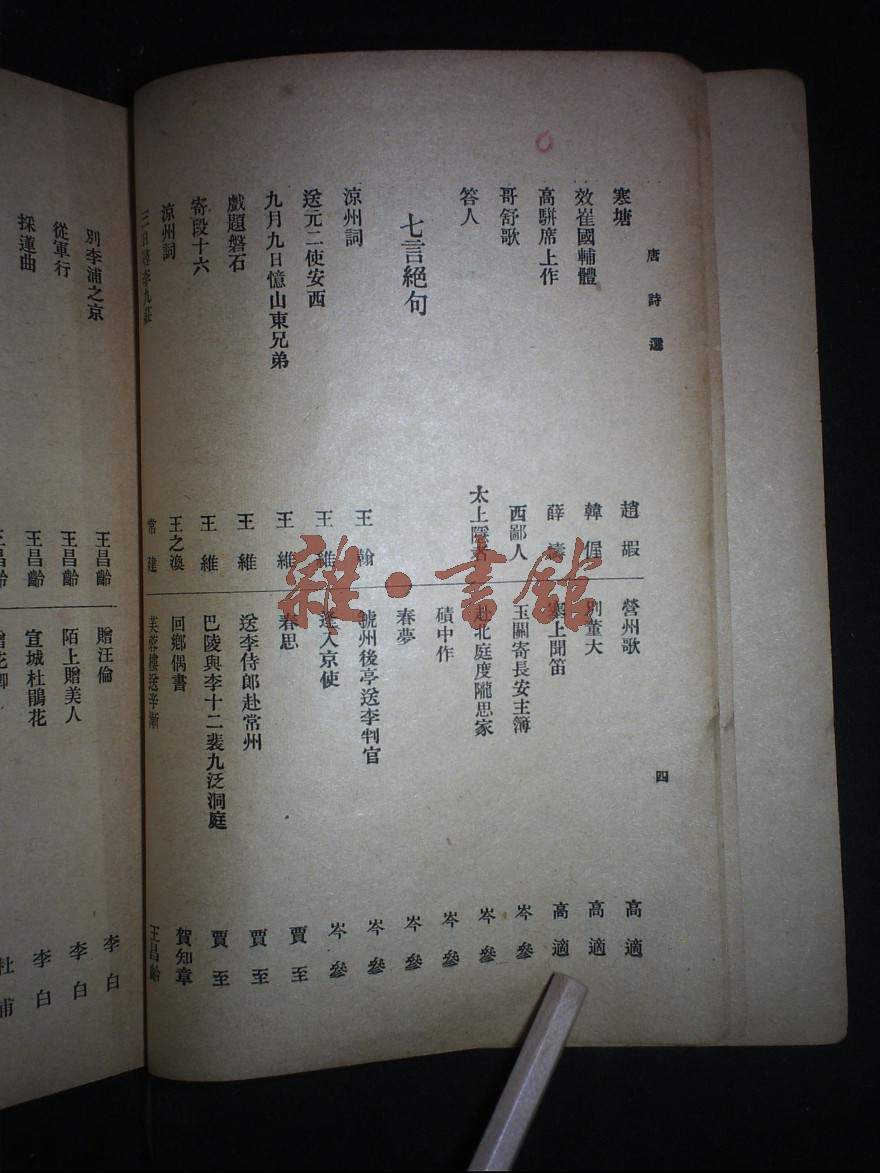 唐詩選
四
寒塘 趙嘏
效崔國輔體 韓偓
高駢席上作 薛濤
哥舒歌 西鄙人
答人 太上隱者
七言絕句
涼州詞 王翰
送元二使安西 王維
九月九日憶山東兄弟 王維
戲題磐石 王維
寄段十六 王維
涼州詞 王之渙
三日尋李九莊 常建
營州歌 高適
別董大 高適
塞上聞笛 高適
玉關寄長安主簿 岑參
赴北庭度隴思家 岑參
磧中作 岑參
春夢 岑參
虢州後亭送李判官 岑參
逢入京使 岑參
春思 賈至
送李侍郎赴常州 賈至
巴陵與李十二裴九泛洞庭 賈至
回鄉偶書 賀知章
芙蓉樓送辛漸 王昌齡
別李浦之京 王昌齡
從軍行 王昌齡
採蓮曲 王昌齡
贈汪倫 李白
陌上贈美人 李白
宣城杜鵑花 李白
贈花卿 杜甫
雜·書館